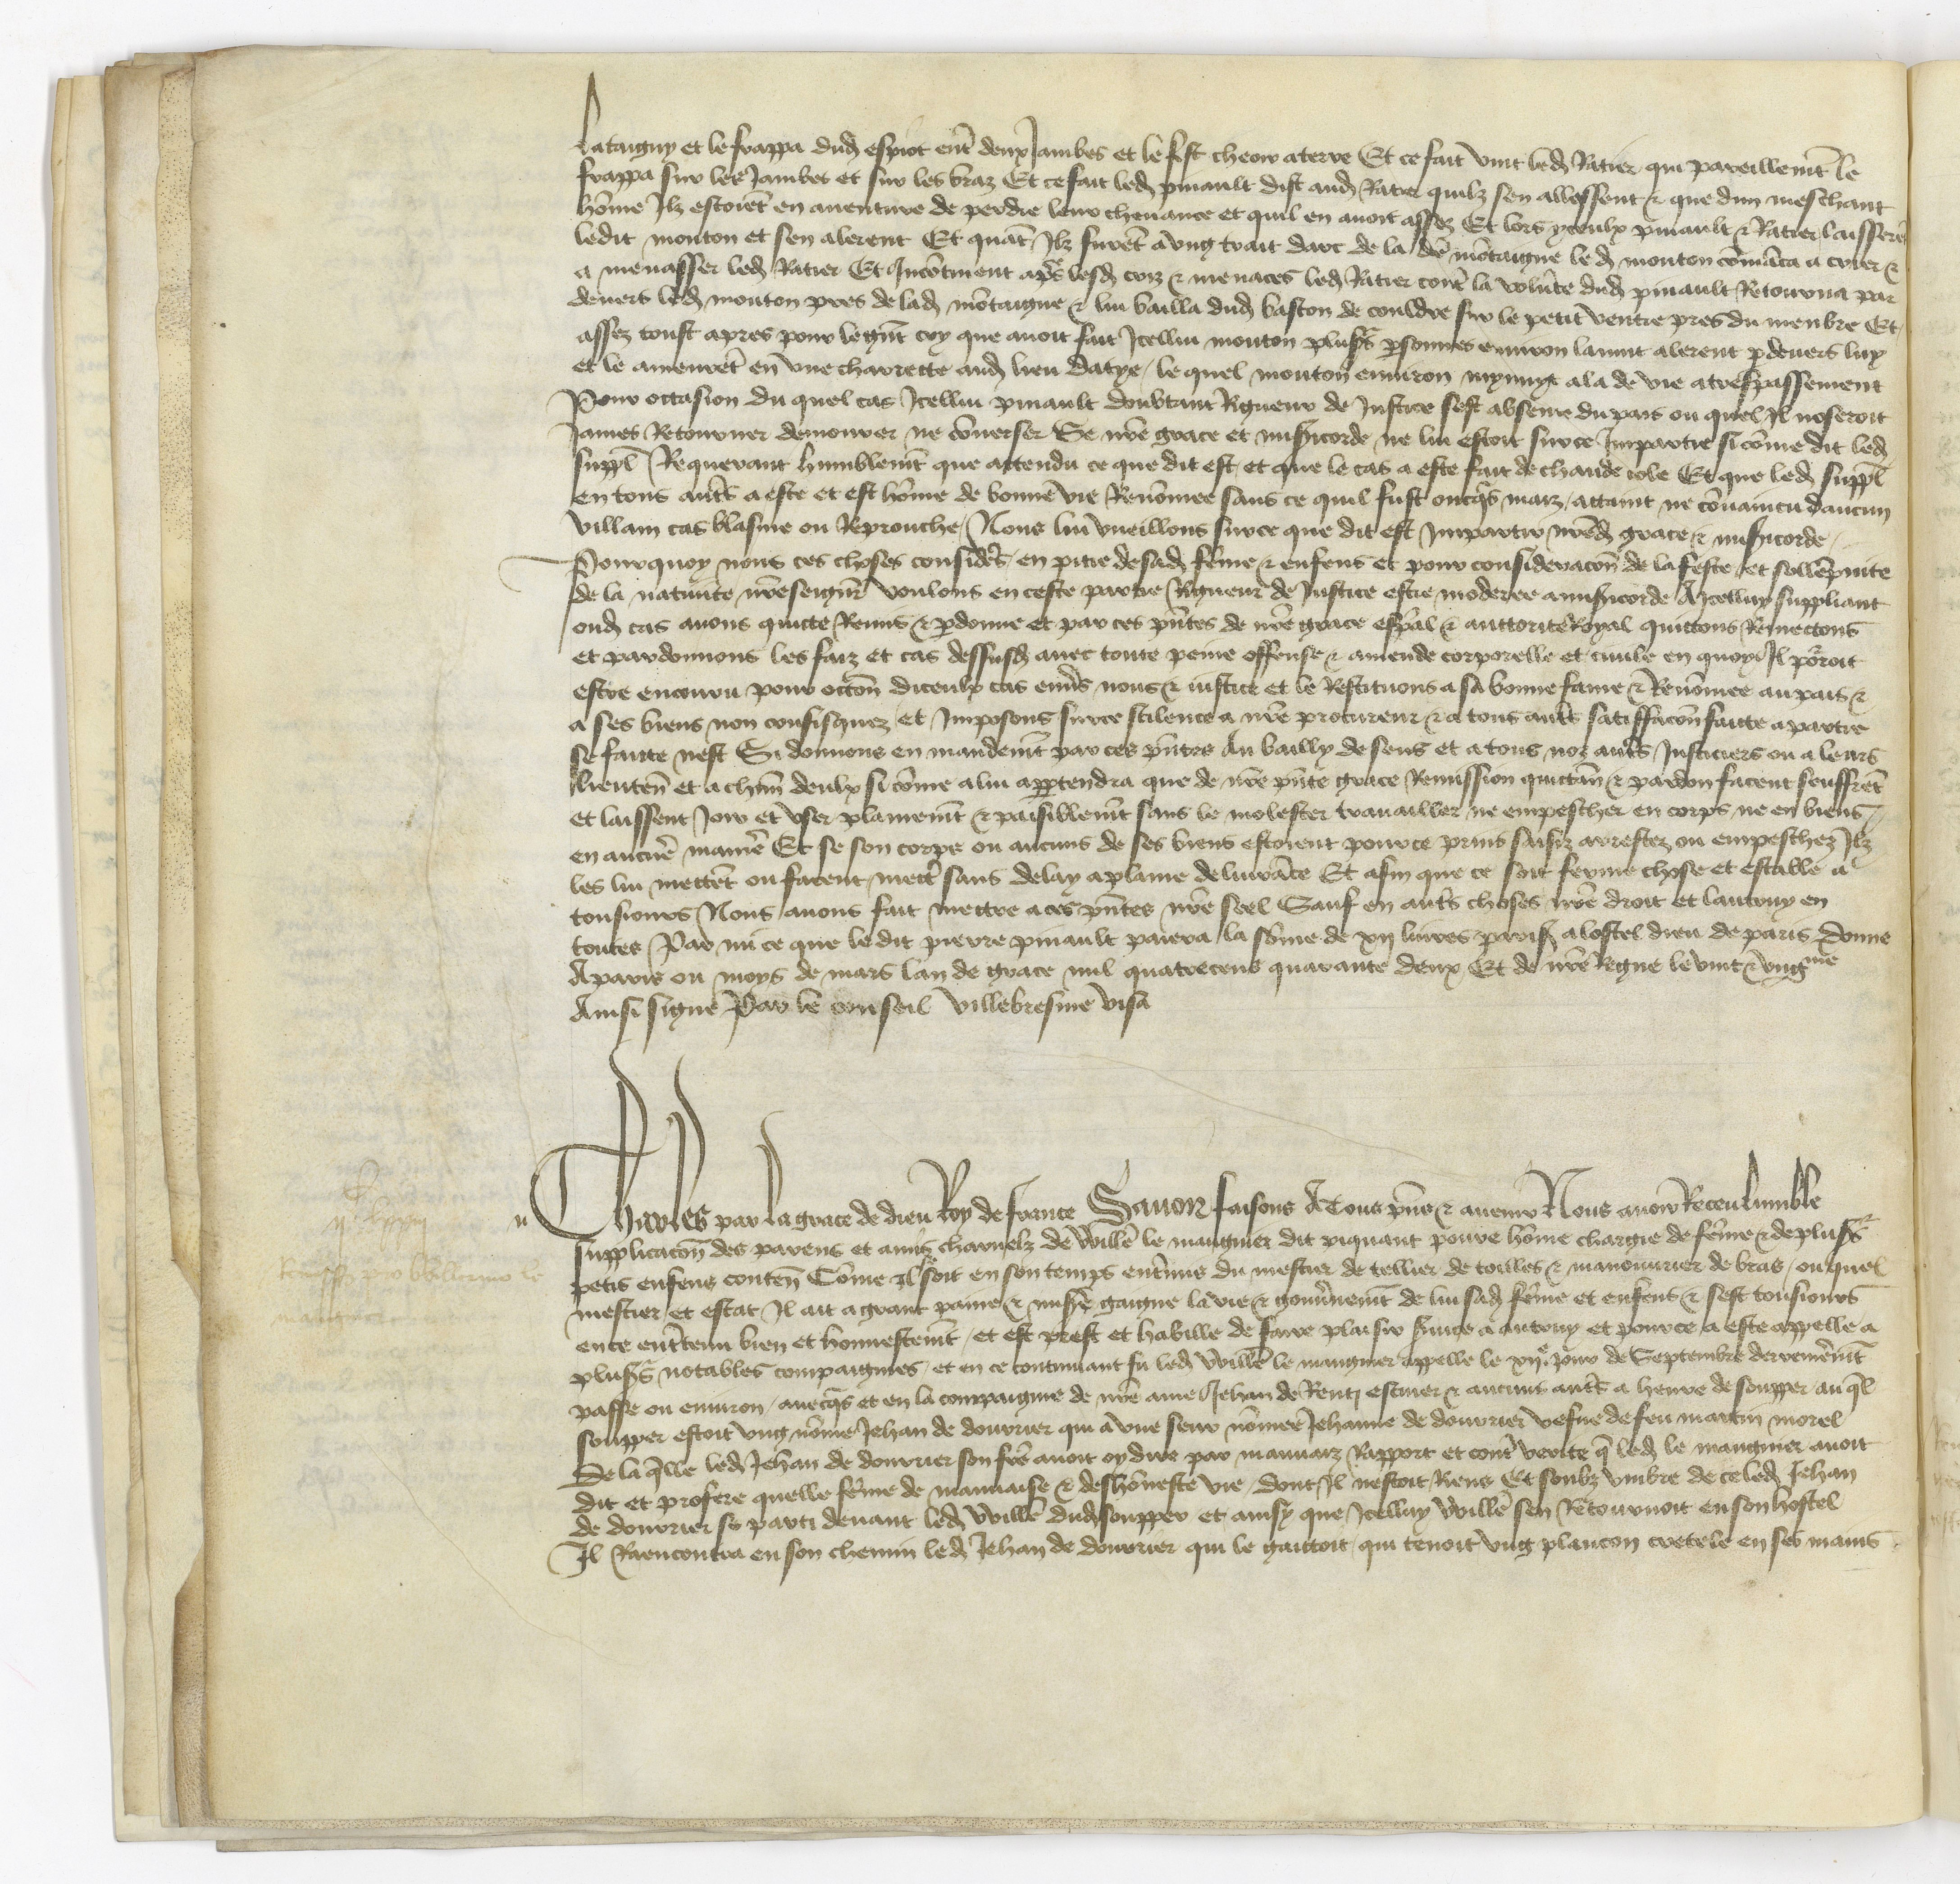 lataigny et le frappa dud espiot entˀ deux Jambes et le fist cheoir aterre Et ce fait vint led Ratier qui pareillemt̄ le
frappa sur les Jambes et sur les braz Et ce fait led pinault dist aud Ratier quilz sen allessent & que dun meschant
hōme Ilz estoiēt en auenture de perdre leur cheuance et quil en auoit assez Et lors yceulx pinault & Ratier laisserēt
ledit monton et sen alerent Et quāt Ilz furēt a vng trait darc de la dˀ mōtaigne led monton cōmāca a crier &
a menasser led Ratier Et Incōtinent apˢ lesd criz & menaces led Ratier contˀ la volūte dud pinault Retourna par
deuers led monton pres de lad mōtaigne & lui bailla dud baston de couldre sur le petit ventre pres du menbre Et
assez toust apres pour le gnt̄ cry que auoit fait Icellui monton plusˢ psonnes enuiron lanuit alerent pdeuers luy
et le amenerēt en vne charrette aud lieu datye, le quel monton enuiron mynuyt ala de vie a trespassement
Pour occasion du quel cas Icellui pinault doubtant Rigueur de Justice sest absente du pais ou quel Il noseroit
James Retourner demourer ne cōuerser Se nr̄e grace et misˀicorde ne lui estoit sur ce Impartie si cōme dit led
suppl̄ Requerant humblemt̄ que attendu ce que dit est, et que le cas a este fait de chaude cole Et que led suppl̄
en tous autˢ a este et est hōme de bonne vie Renōmee sans ce quil fust oncqˢ maiz, attaint ne cōuaincu daucun
villain cas blasme ou Reprouche, Nous lui vueillons sur ce que dit est Impartir nr̄ed grace & misˀicorde,
Pourquoy nous ces choses considˀes, en pitie de sad fēme & enfens et pour consideracōn de la feste et sollēpnite
de la natiuite nr̄e seignr̄ voulons en ceste partie Rigueur de Justice estre moderee a misˀicorde A Icelluy suppliant
oud cas auons quicte Remis & pdonne et par ces pn̄tes de nr̄e grace esp̄al & auttorite Royal quittons Remectons
et pardonnons les faiz et cas dessusd auec toute peine offense & amende corporelle et ciuile en quoy Il poˀroit
estre encouru pour occōn diceulx cas enūs nous & iustice et le Restituons a sa bonne fame & Renōmee au pais &
a ses biens non confisquez, et Imposons sur ce scilence a nr̄e procureur & a tous autˢ satisffacōn faitte a partie
se faitte nest Si donnons en mandemt̄ par ces pn̄tes Au bailly de sens et a tous noz autˢ Justiciers ou a leurs
lieuten̄ et a chun̄ deulx si cōme a lui appartendra que de nr̄e pn̄te grace Remission quictān & pardon facent seuffrēt
et laissent Joir et vser plainemt̄ & paisiblemt̄ sans le molester trauailler ne empescher en corps ne en biens
en aucūe manˀe Et se son corps ou aucuns de ses biens estoient pour ce prins saisiz arrestez ou empeschez Ilz
les lui mettēt ou facent mettˀ sans delay a plaine deliurāce Et afin que ce soit ferme chose et estable a
tousiours Nous auons fait mettre a ces pn̄tes nr̄e seel Sauf en autˢ choses nr̄e droit et lautruy en
toutes Par mi ce que le dit pierre pinault paiera la sōme de xij liures parisˀ a lostel dieu de paris Donne
A paris ou moys de mars lan de grace mil quatrecens quarante deux Et de nr̄e Regne le vint & vngme
Ainsi signe Par le conseil Villebresme visa
Charles par la grace de dieu Roy de france Sauoir faisons A Tous pn̄s & auenir Nous auoir Receu lumble
supplicacōn des parens et amis charnelz de Willēˀ le mangnier dit piquant poure hōme chargie de fēme & de plusˢ
petis enfens conten̄ Cōme Il soit en son temps entˀmis du mestier de tellier de toilles & manouurier de bras, ou quel
mestier et estat Il ait a grant paine & misˀe gaigne la vie & gouūnemt̄ de lui sad fēme et enfens & sest tousiours
en ce entˀtenu bien et honnestemt̄, et est prest et habille de faire plaisir sˀuice a autruy et pour ce a este appelle a
plusˢ notables compaignies, et en ce continuant fu led Willē le mangnier appelle le xijᵉ Jour de Septembre derrenieremt̄
passe ou enuiron, auecqˢ et en la compaignie de nr̄e ame Jehan de Renti escuier & aucuns autˢ a heure de soupper, au q̄l
soupper estoit vng nōme Jehan de dourrier qui a vne seur nōmee Jehanne de dourrier vefue de feu martin morel
De la q̄lle led Jehan de dourrier son frē auoit oy dire par mauuaiz Rapport et contˀ verite q̄ led le mangnier auoit
dit et profere quelle fēme de mauuaise & deshōneste vie, dont Il nestoit Riens Et soubz vmbre de ce led Jehan
de dourrier se parti deuant led Willē dud soupper et ainsy que Icelluy Willē sen Retournoit en son hostel
Il Raencontra en son chemin led Jehan de dourrier qui le gaittoit, qui tenoit vng plancon cretele en ses mains